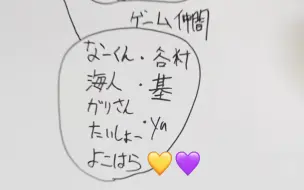 ゲーム仲間
なーくん・各村
海人・基
がりさん
たいしょー・Ya
よこはら💛💜